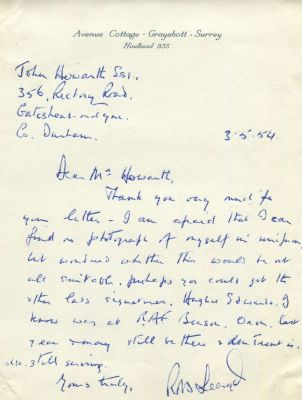 Avenue Cottage · Grayshott · Surrey
Hindhead 935
John Howarth Esq.,
356, Rectory Road,
Gateshead-on-Tyne.
Co. Durham.
3.5.54.
Dear Mr Howarth,
Thank you very much for
your letter - I am afraid that I can
find no photograph of myself in uniform,
but wondered whether this would be at
all suitable. perhaps you could get the
other lads signatures. Hughie Edwards, I
know was at RAF Benson, Oxon, last
year & may still be there &
also still serving.
Yours truly,